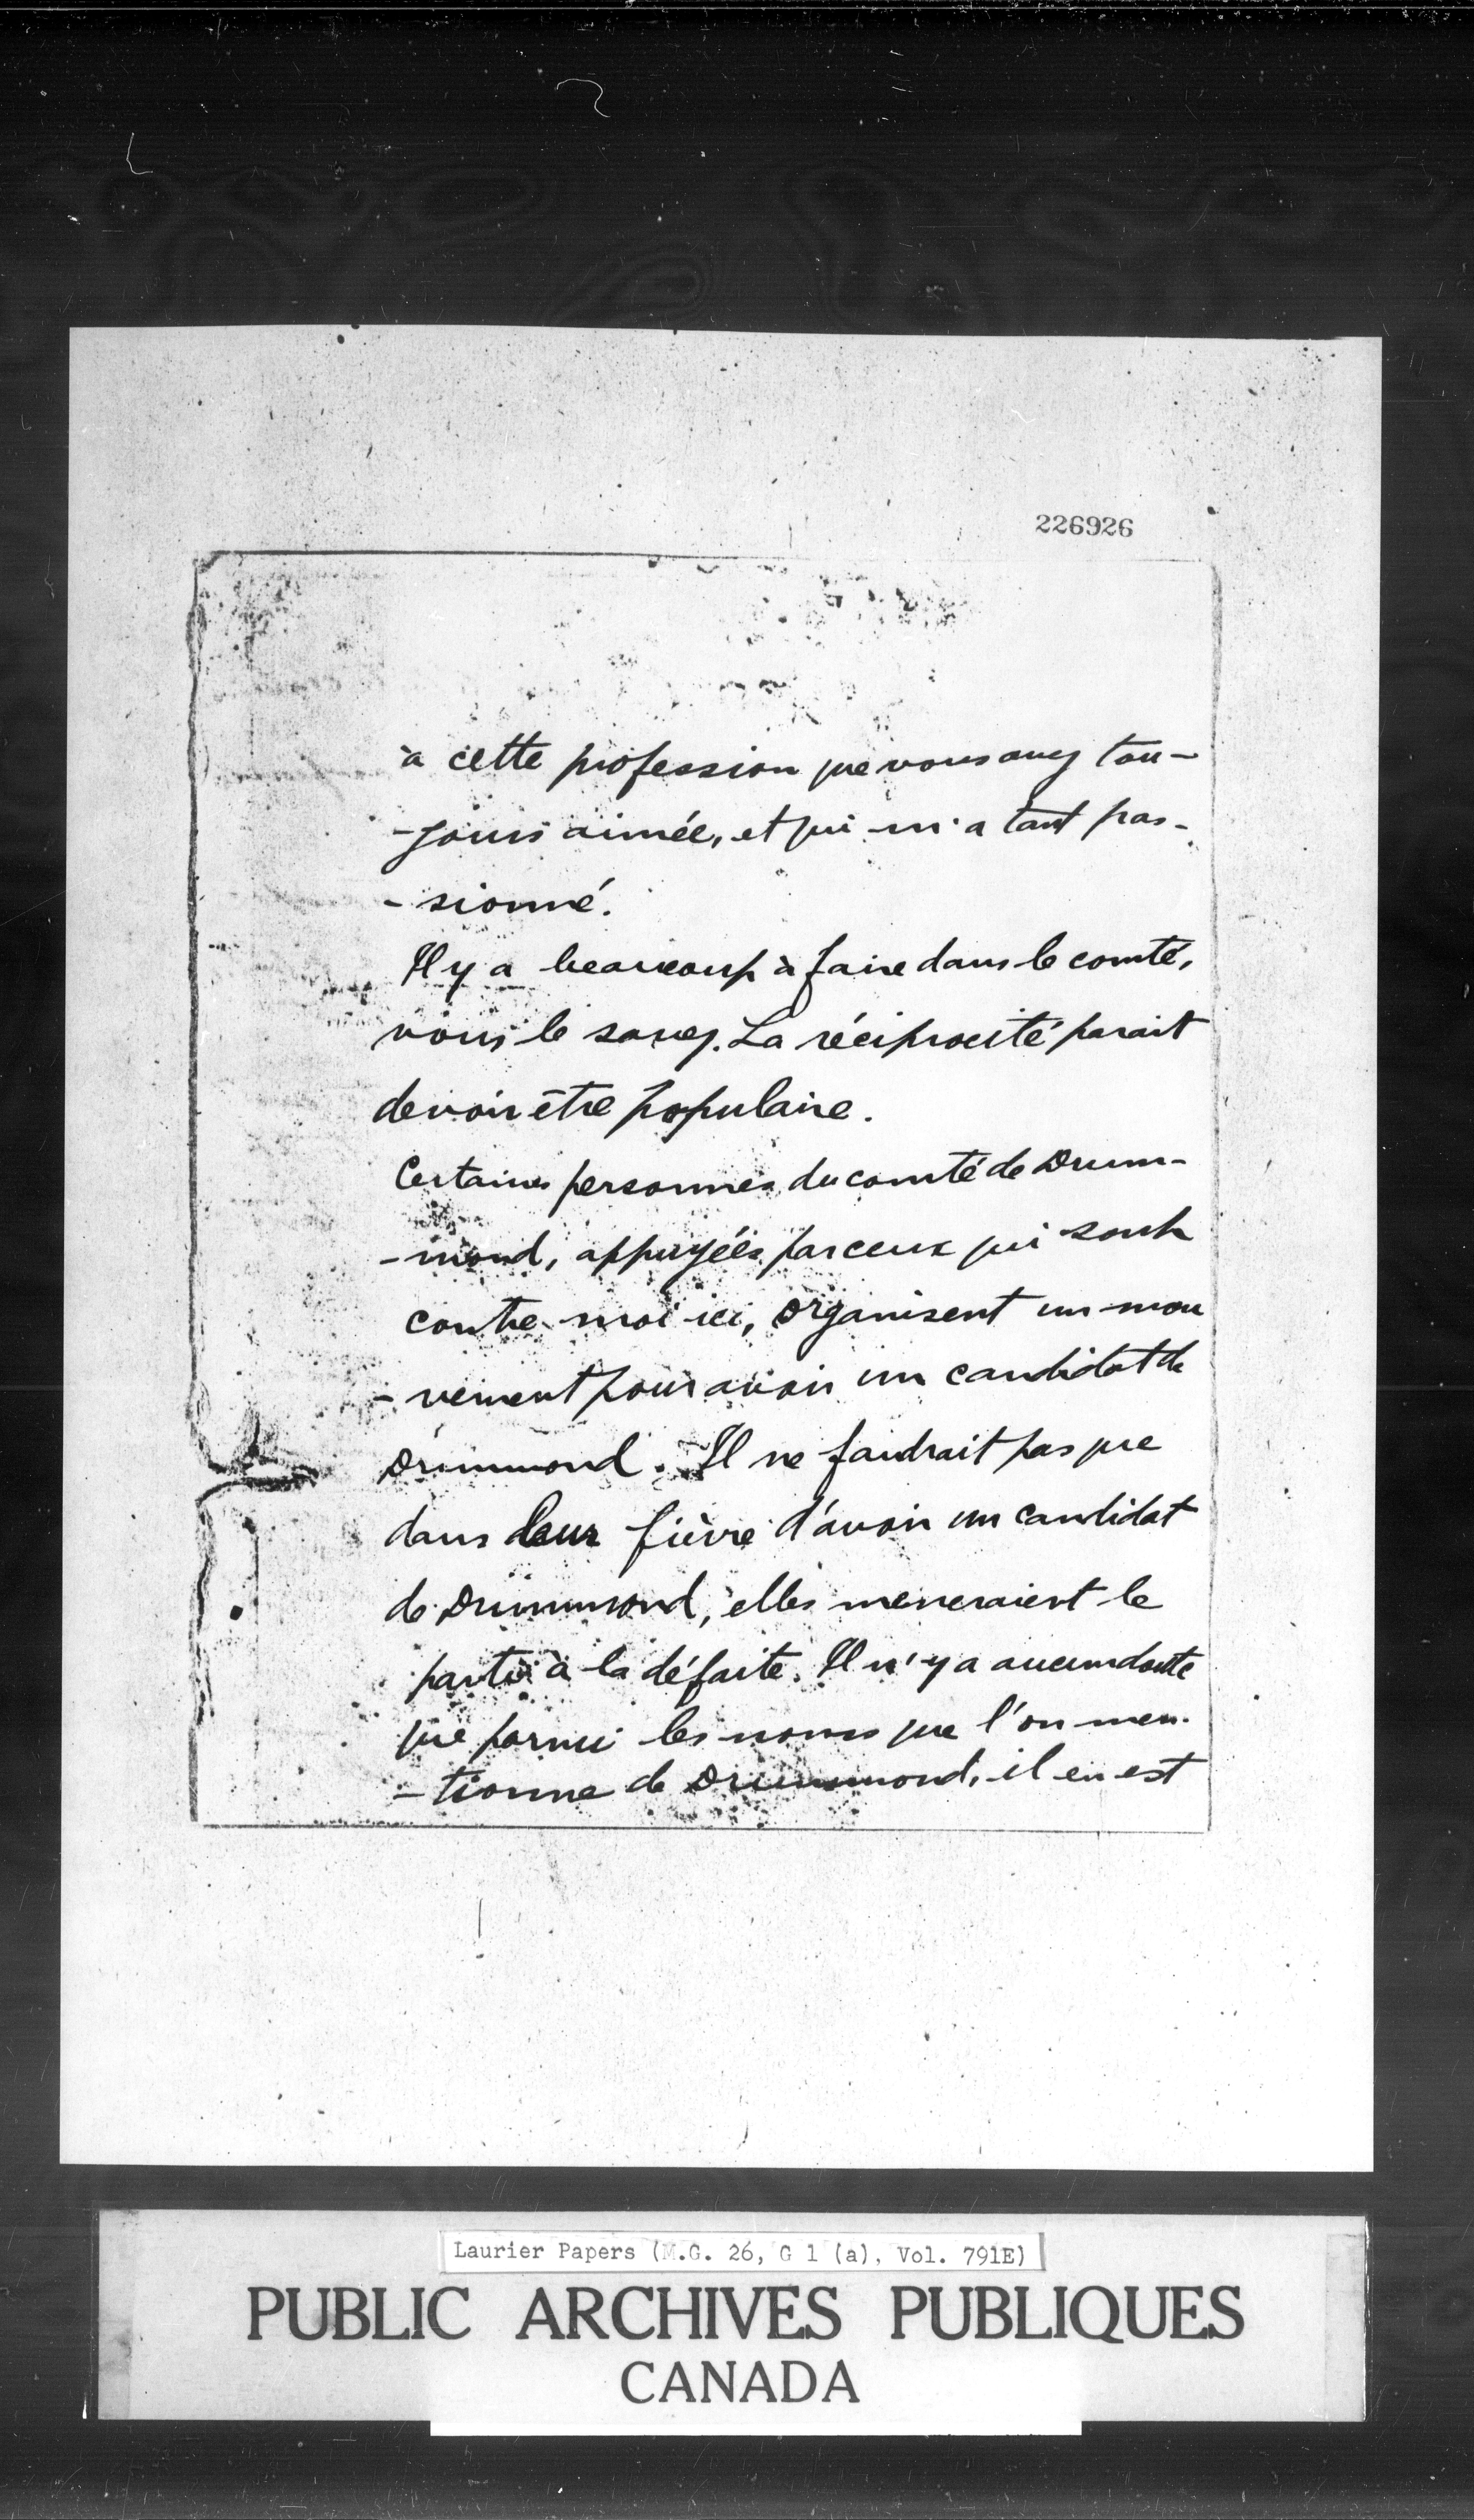 226926
à cette profession que vous avez tou-
-jours aimée, et qui m'a tant pas-
-sionné.
Il y a beaucoup à faire dans le comté,
vous le savez. La réciprocité parait
devoir être populaire.
Certaines personnes du comté de Drum-
-mond, appuyées par ceux qui sont
contre moi ici, organisent un mou
-vement pour avoir un candidat de
Drummond. Il ne faudrait pas que
dans leur fièvre d'avoir un candidat
de Drummond, elles meneraient le
parti à la défaite. Il n'y a aucun doute
que parmi les noms que l'on men-
-tionne de Drummond, il en est
Laurier Papers (M.G. 26, G 1 (a), Vol. 791E)
PUBLIC ARCHIVES PUBLIQUES
CANADA